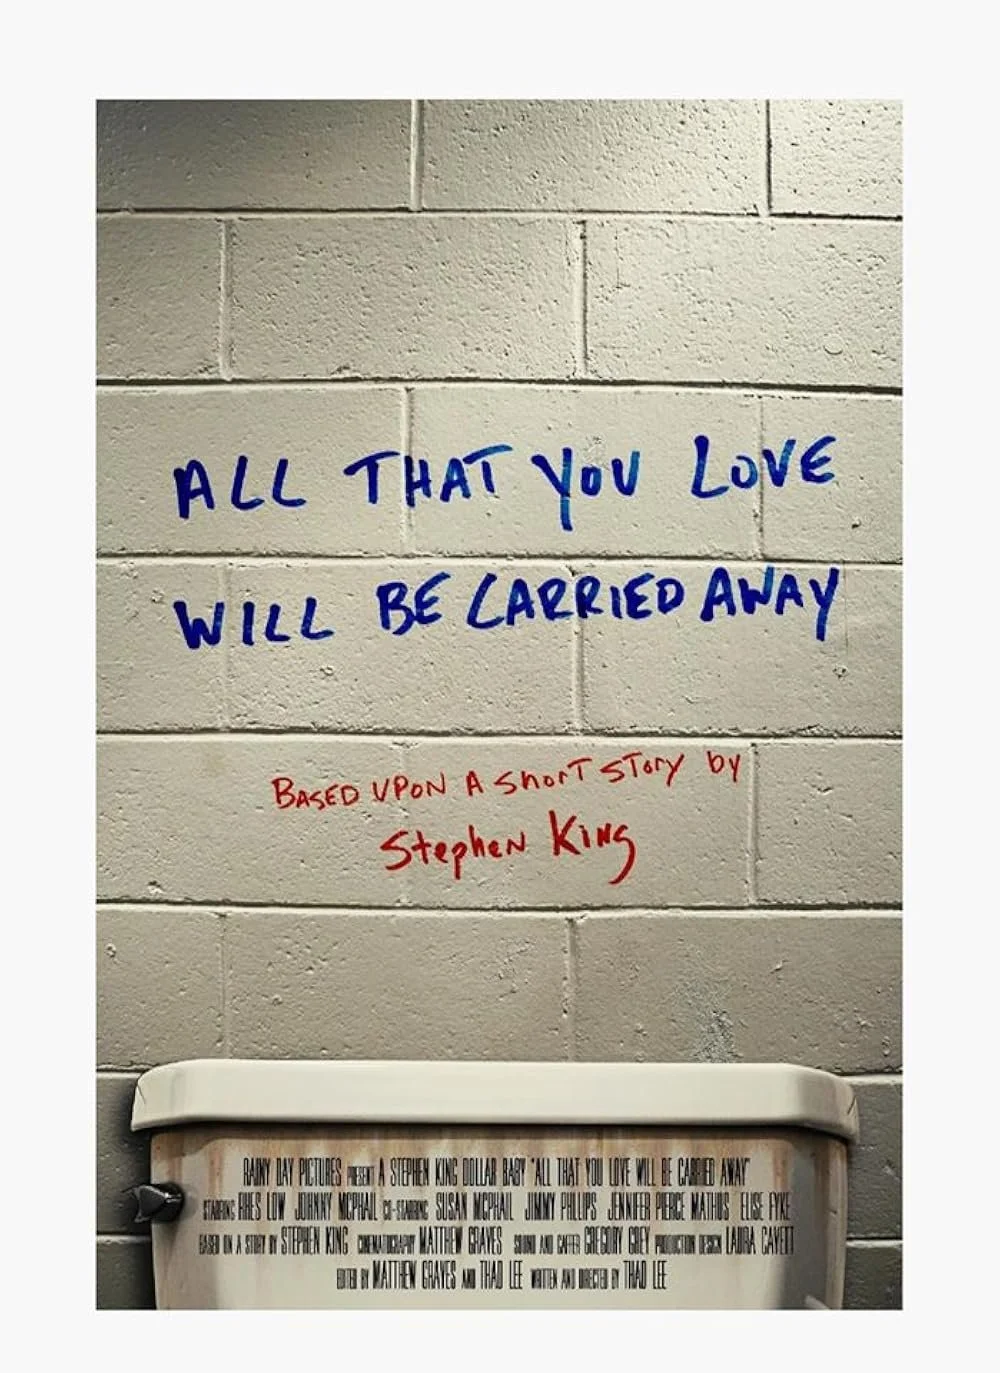 ALL THAT YOU LOVE
WILL BE CARRIED AWAY
BASED UPON A SHORT STORY by
Stephen King
RAINY DAY PICTURES PRESENT A STEPHEN KING DOLLAR BABY "ALL THAT YOU LOVE WILL BE CARRIED AWAY"
STARRING RHES LOW JOHNNY MCPHAIL CO-STARRING SUSAN MCPHAIL JIMMY PHILLIPS JENNIFER PIERCE MATHUS ELISE FYKE
BASED ON A STORY BY STEPHEN KING CINEMATOGRAPHY MATTHEW GRAVES SOUND AND GAFFER GREGORY GREY PRODUCTION DESIGN LAURA CAVETT
EDITED BY MATTHEW GRAVES AND THAD LEE WRITTEN AND DIRECTED BY THAD LEE